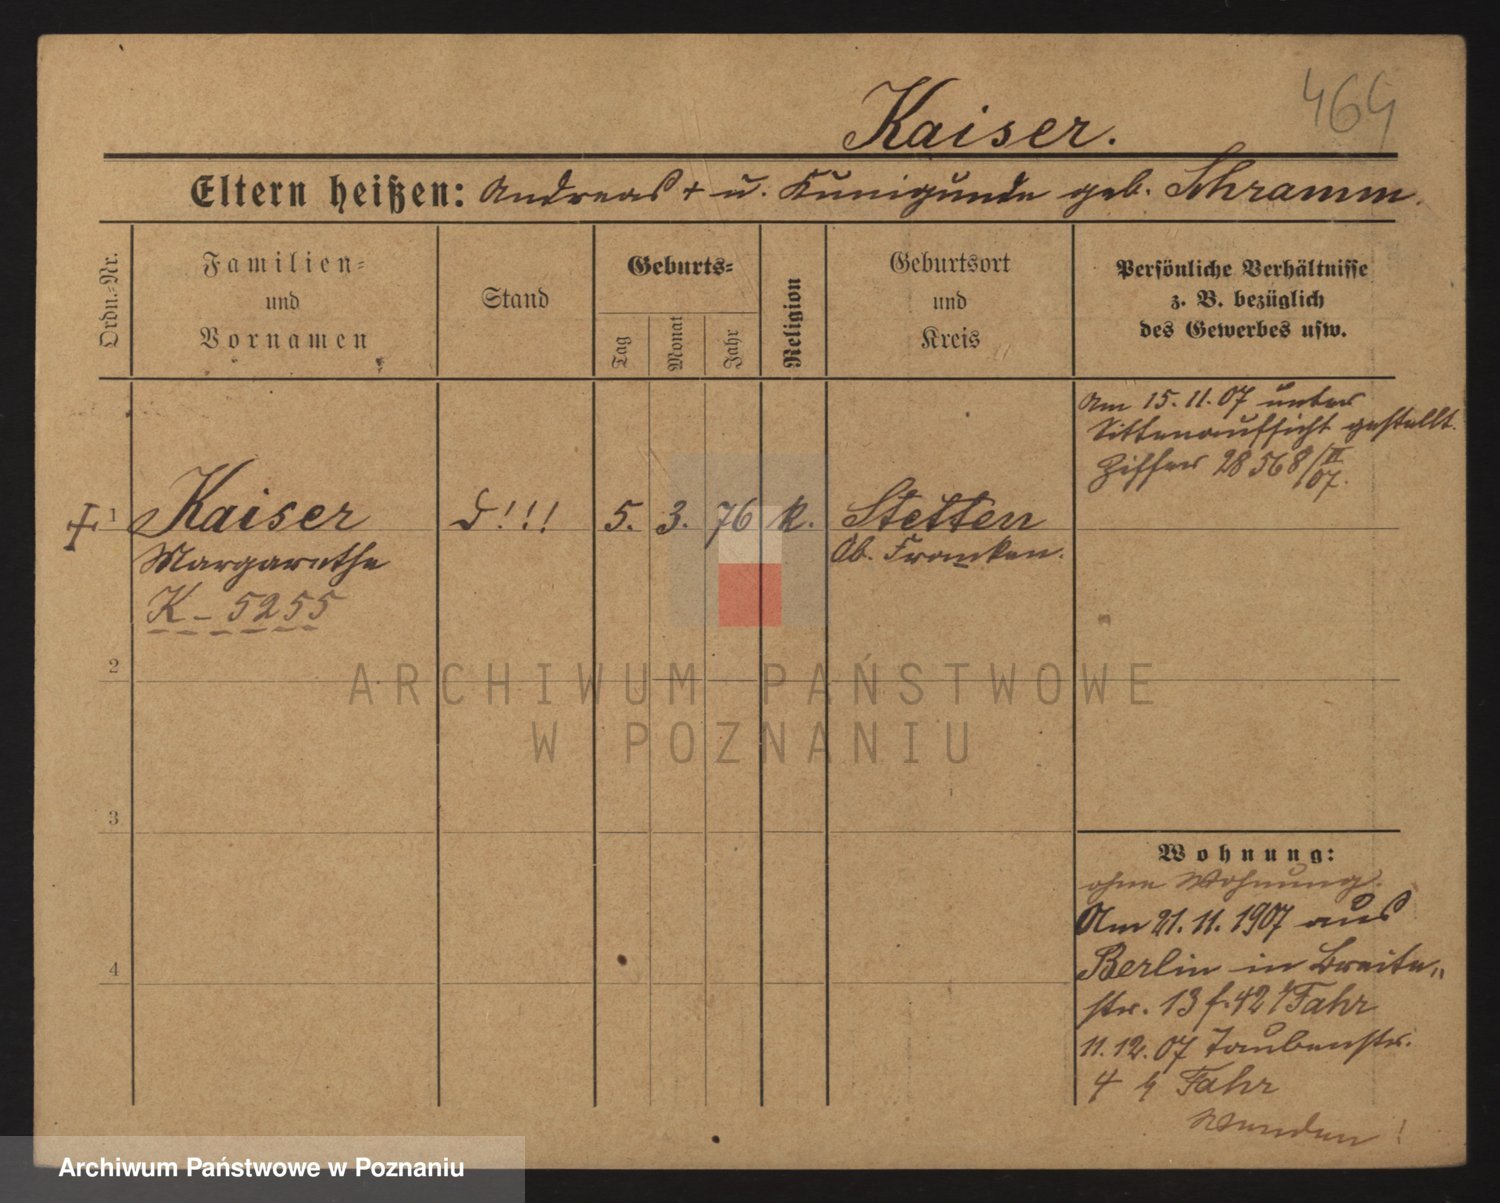 464
Kaiser.
Eltern heißen: Andreas + u. Kunigunde geb. Schramm.
Ordn.-Nr.
Familien-
und
Vornamen
Stand
Geburts-
Tag
Monat
Jahr
Religion
Geburtsort
und
Kreis
Persönliche Verhältnisse
z. B. bezüglich
des Gewerbes usw.
Am 15.11.07 unter
Sittenaufsicht gestellt.
Ziffer 28568/II 07.
1 Kaiser D!!! 5. 3. 76 k. Stetten
Margarethe Ob. Franken.
K - 5255
2
3
4
Wohnung:
ohne Wohnung.
Am 21.11.1907 aus
Berlin in Breite-
str. 13 Fahr
11.12.07 Taubenstr.
4 Fahr
Wenden!
ARCHIWUM PAŃSTWOWE
W POZNANIU
Archiwum Państwowe w Poznaniu